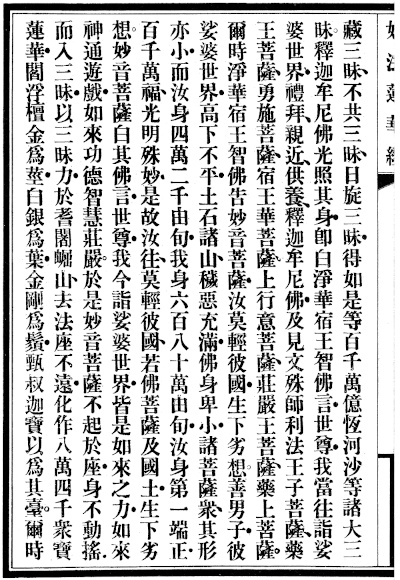 妙法蓮華經
藏三昧不共三昧日旋三昧得如是等百千萬億恆河沙等諸大三
昧釋迦牟尼佛光照其身卽白淨華宿王智佛言世尊我當往詣娑
婆世界禮拜親近供養釋迦牟尼佛及見文殊師利法王子菩薩藥
王菩薩勇施菩薩宿王華菩薩上行意菩薩莊嚴王菩薩藥上菩薩
爾時淨華宿王智佛告妙音菩薩汝莫輕彼國生下劣想善男子彼
娑婆世界高下不平土石諸山穢惡充滿佛身卑小諸菩薩衆其形
亦小而汝身四萬二千由旬我身六百八十萬由旬汝身第一端正
百千萬福光明殊妙是故汝往莫輕彼國若佛菩薩及國土生下劣
想妙音菩薩白其佛言世尊我今詣娑婆世界皆是如來之力如來
神通遊戲如來功德智慧莊嚴於是妙音菩薩不起於座身不動搖
而入三昧以三昧力於耆闍崛山去法座不遠化作八萬四千衆寶
蓮華閻浮檀金爲莖白銀爲葉金剛爲鬚甄叔迦寶以爲其臺爾時